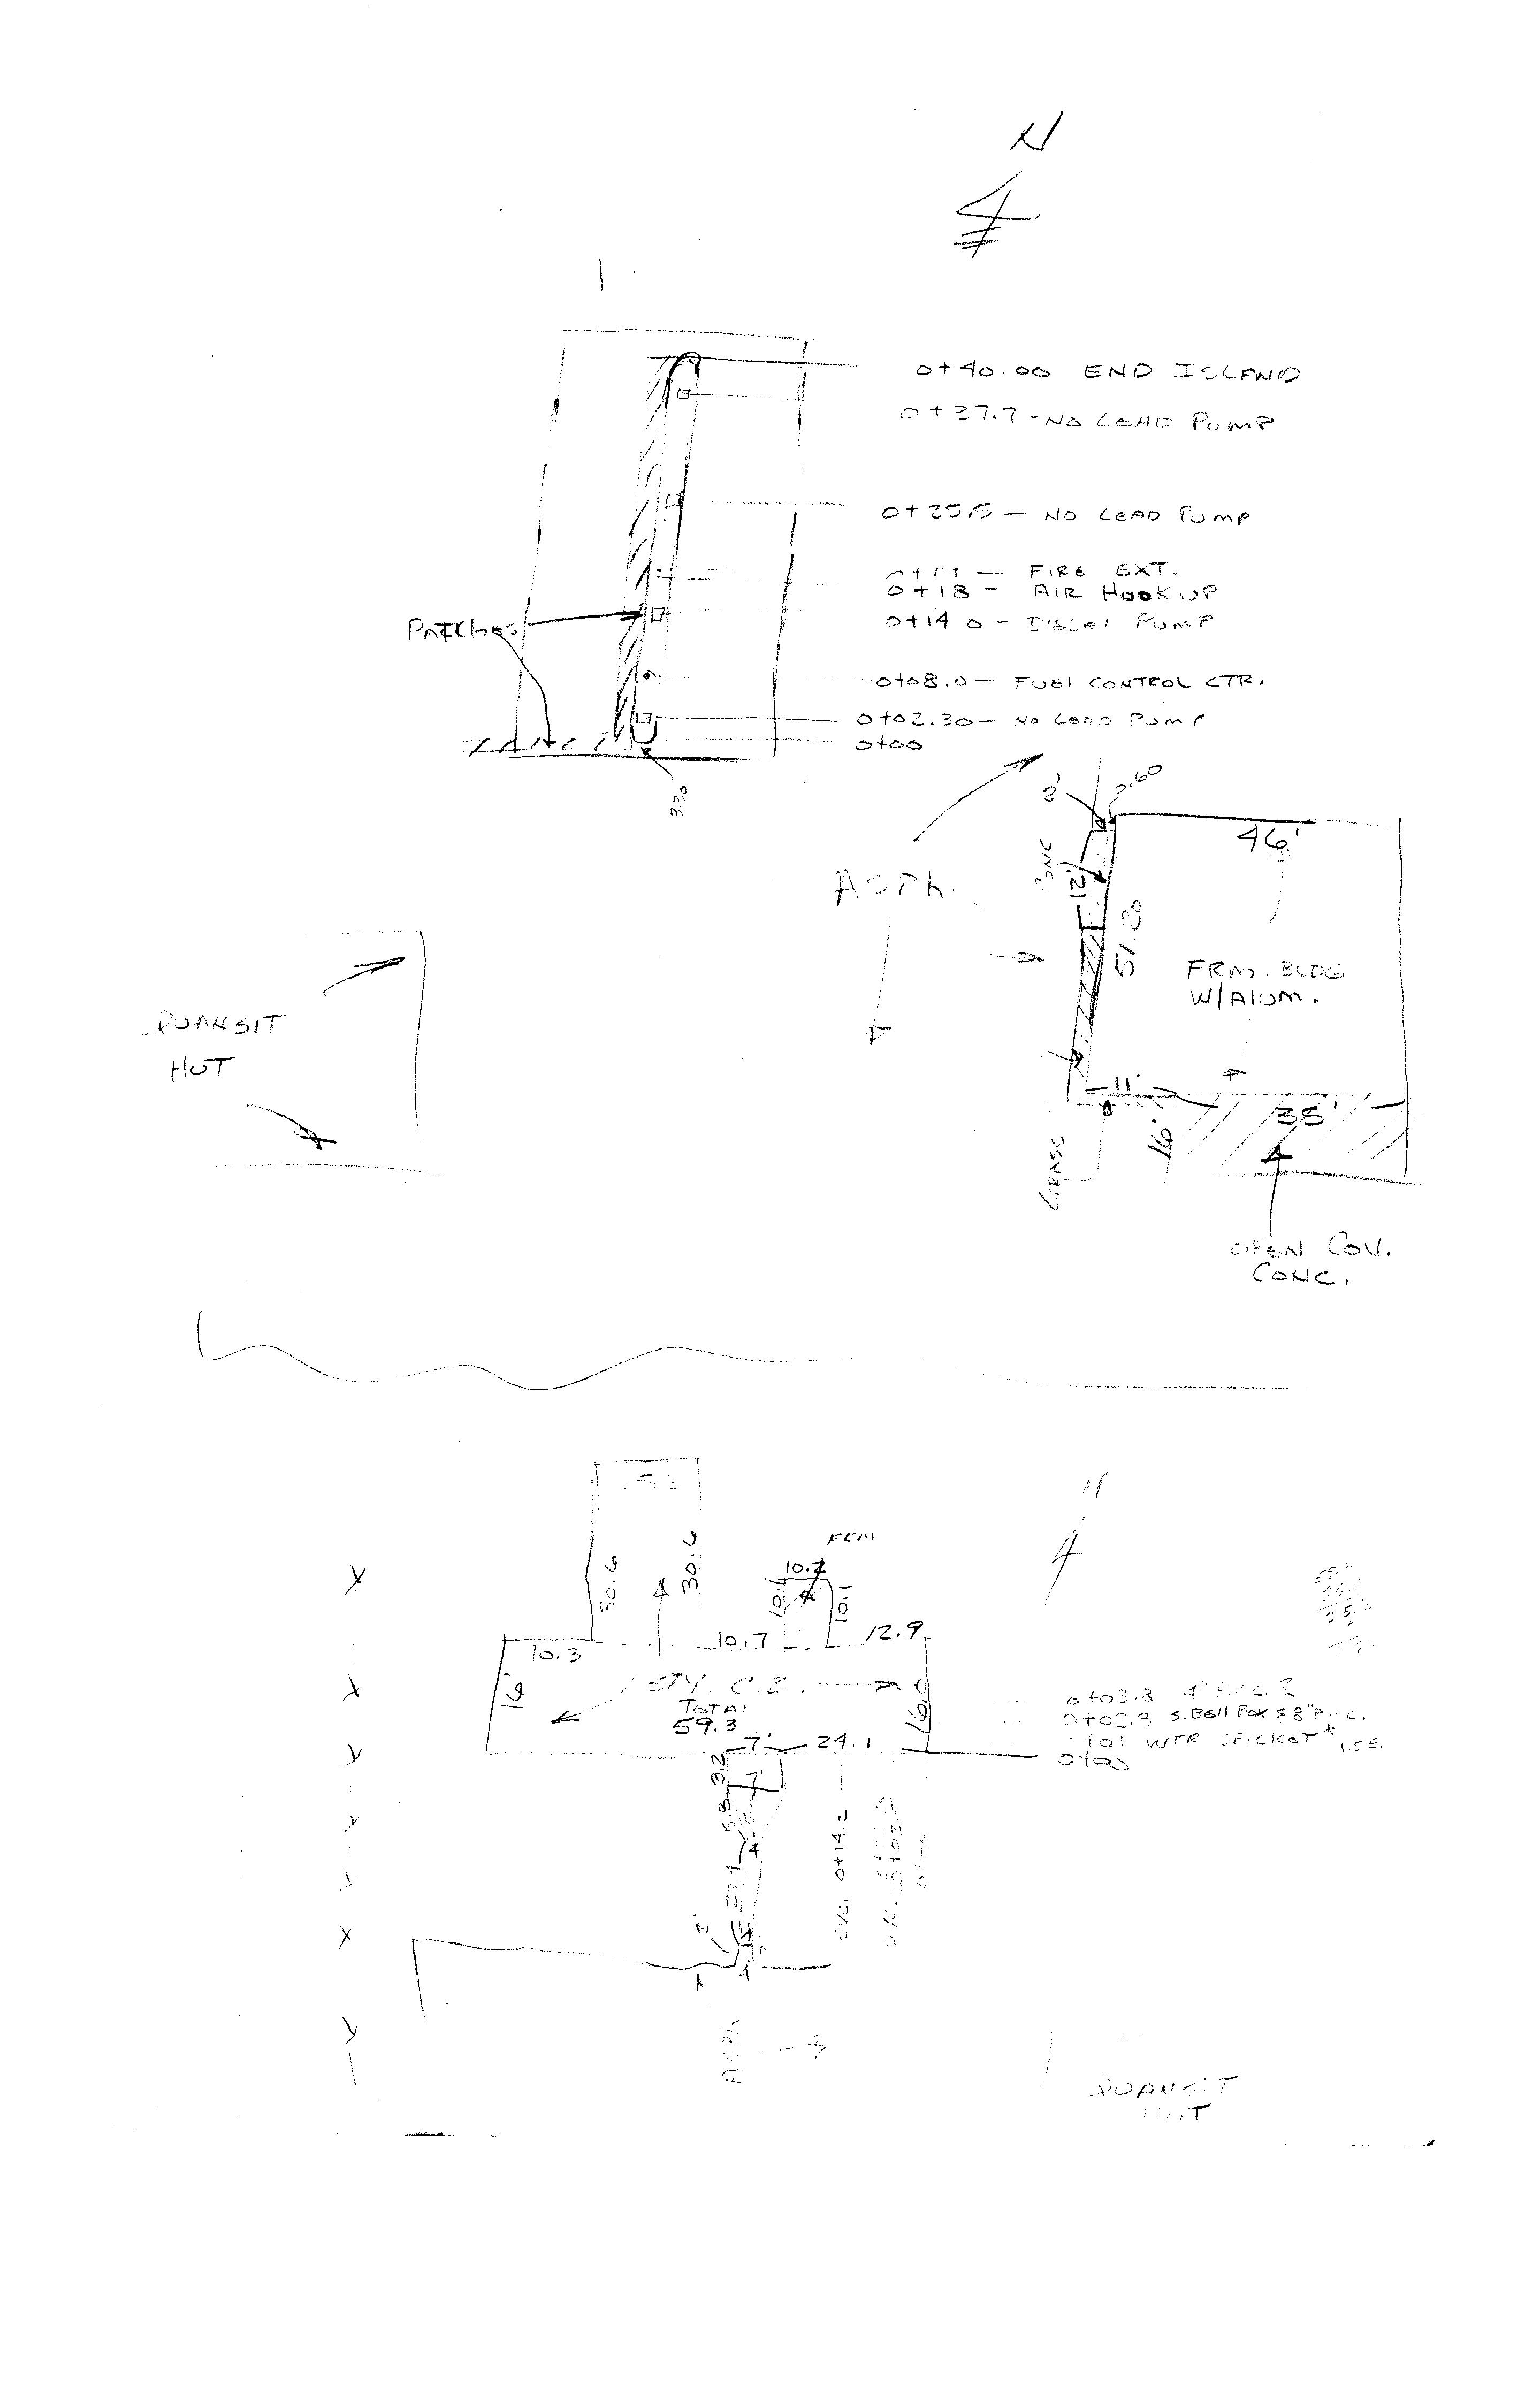 N
0+40.00 END ISLAND
0+37.7 - NO LEAD PUMP
0+25.5 - NO LEAD PUMP
FIRE EXT.
0+18 - AIR HOOKUP
0+14.0 - DIESEL PUMP
PATCHES
0+08.0 - FUEL CONTROL CTR.
0+02.30 - NO LEAD PUMP
0+00
3.30
2'
46'
CONC
12'
ASPh.
51.20
FRM. BLDG
W/Alum.
QUANSIT
HUT
11'
35'
16'
GRASS
OPEN COV.
CONC.
N
FRM
10.2
30.6
30.6
10.1
10.1
10.3
10.7
12.9
16'
TOTAL
59.3
16.0
0+03.8 4" P.V.C.
0+02.3 S. Bell Box & 8" P.V.C.
WTR SPICKOT
0+00
7'
24.1
3.2
7'
0+14.2
2'
ASPh
QUANSIT
HUT